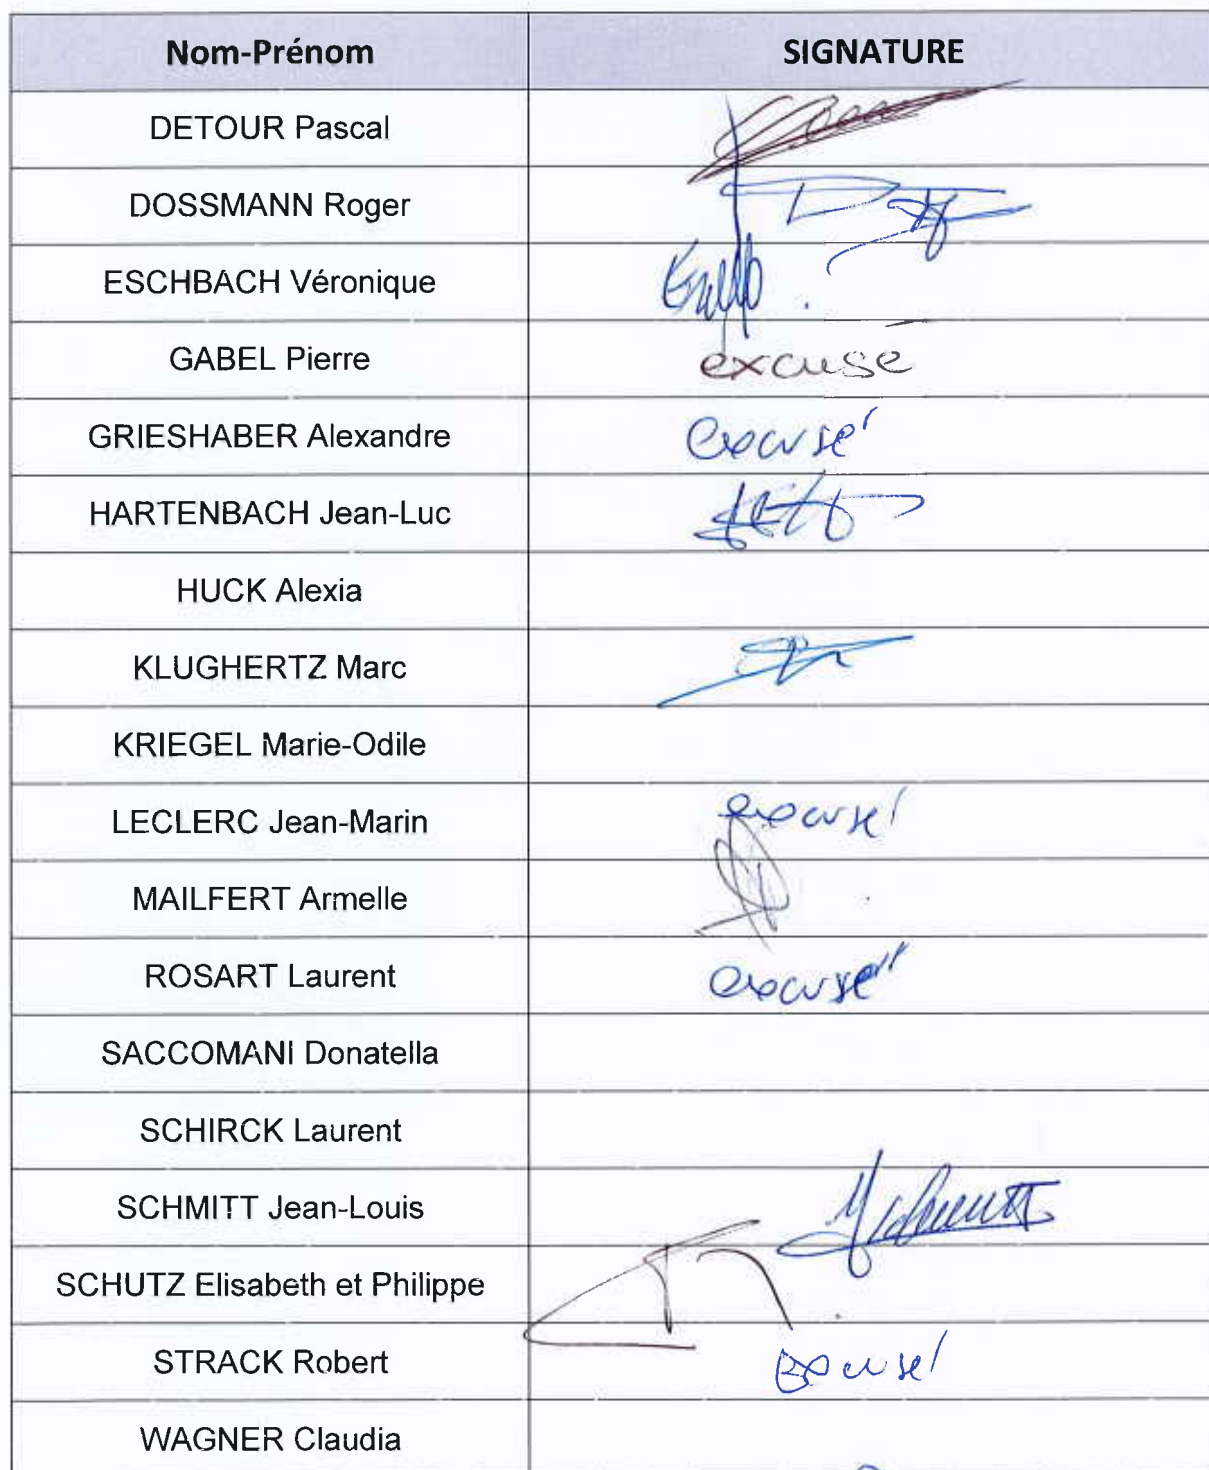 Nom-Prénom SIGNATURE
DETOUR Pascal
DOSSMANN Roger
ESCHBACH Véronique
GABEL Pierre excusé
GRIESHABER Alexandre excusé
HARTENBACH Jean-Luc
HUCK Alexia
KLUGHERTZ Marc
KRIEGEL Marie-Odile
LECLERC Jean-Marin excusé
MAILFERT Armelle
ROSART Laurent excusé
SACCOMANI Donatella
SCHIRCK Laurent
SCHMITT Jean-Louis
SCHUTZ Elisabeth et Philippe
STRACK Robert excusé
WAGNER Claudia